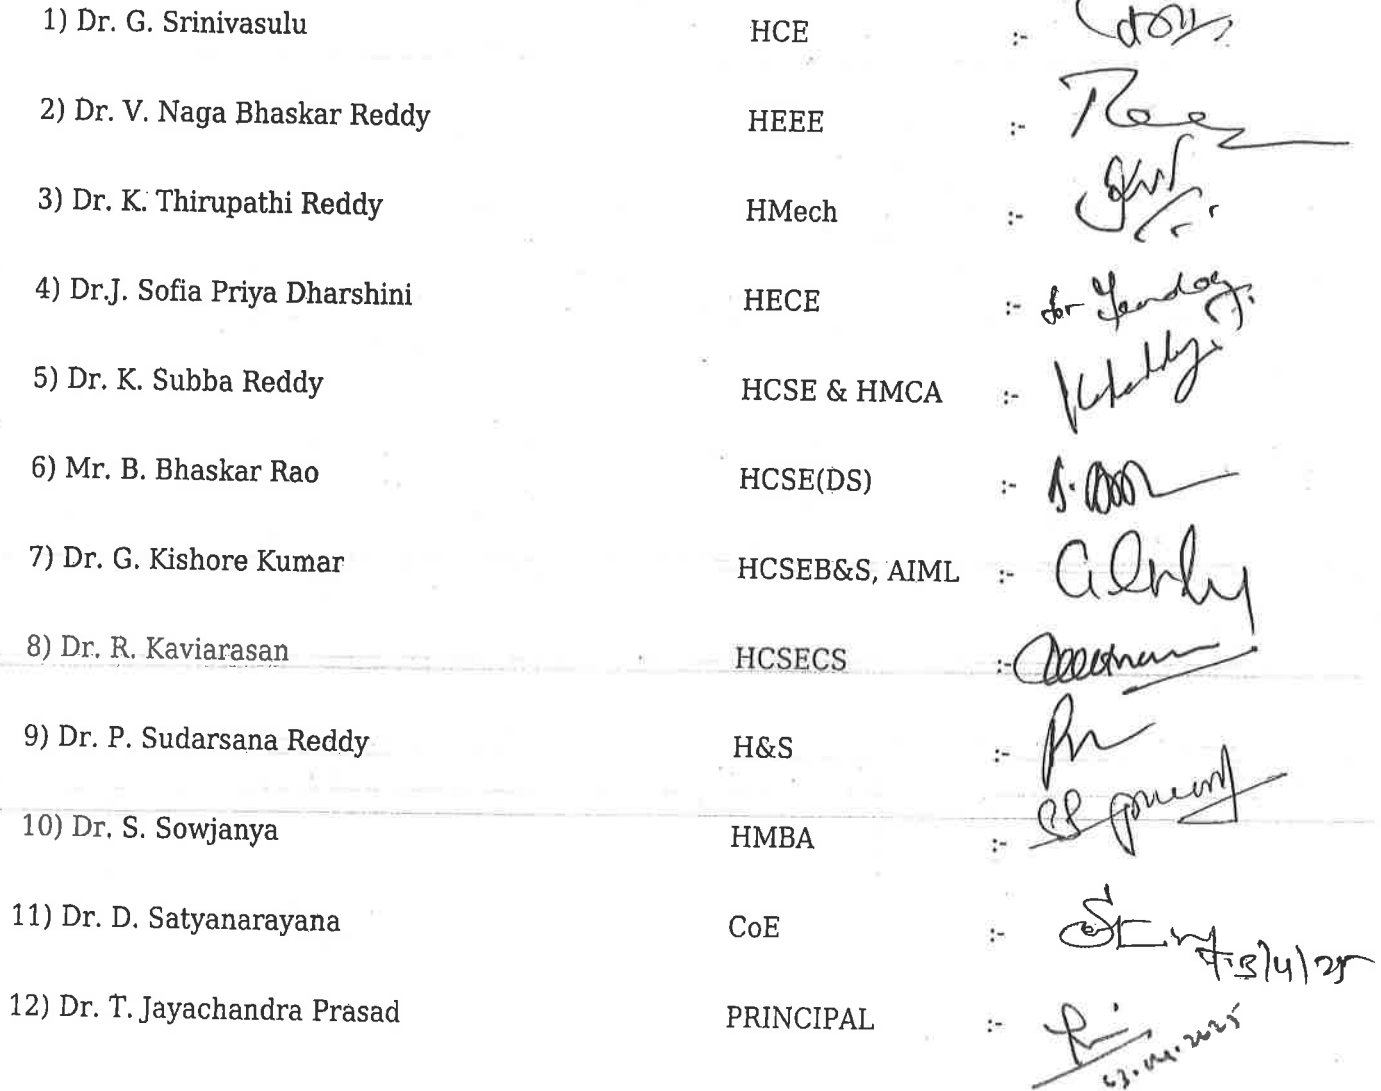 1) Dr. G. Srinivasulu HCE :-
2) Dr. V. Naga Bhaskar Reddy HEEE :-
3) Dr. K. Thirupathi Reddy HMech :-
4) Dr.J. Sofia Priya Dharshini HECE :- for
5) Dr. K. Subba Reddy HCSE & HMCA :-
6) Mr. B. Bhaskar Rao HCSE(DS) :-
7) Dr. G. Kishore Kumar HCSEB&S, AIML :-
8) Dr. R. Kaviarasan HCSECS :-
9) Dr. P. Sudarsana Reddy H&S :-
10) Dr. S. Sowjanya HMBA :-
11) Dr. D. Satyanarayana CoE :- 3/4/25
12) Dr. T. Jayachandra Prasad PRINCIPAL :-
03.04.2025